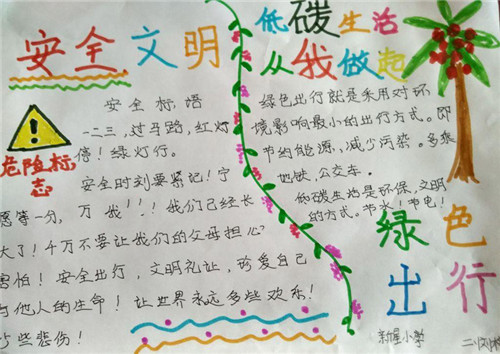 安全文明
安全标语
一二三，过马路，红灯
停！绿灯行。
安全时刻要紧记！宁
愿等一分，万 我！！！我们已经长
大了！千万不要让我们的父母担心
害怕！安全出行，文明礼让，珍爱自己
与他人的生命！让世界永远多些欢乐！
少些悲伤！
危险标
志
低碳生活
从我做起
绿色出行就是采用对环
境影响最小的出行方式。即
节约能源，减少污染。多乘
地铁，公交车。
低碳生活是环保，文明
的方式。节水！节电！
绿色
出行
新屋小学